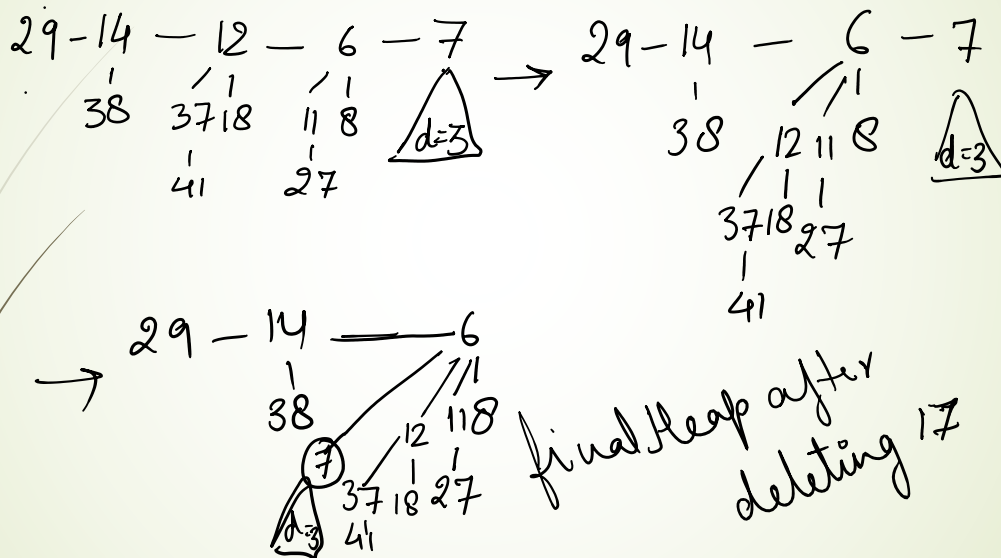 29 - 14 — 12 — 6 — 7
38 37 18 11 8 d=3
41 27
→ 29 - 14 — 6 — 7
38 12 11 8 d=3
37 18 27
41
→ 29 - 14 — 6
38 12 11 8
7 37 18 27
d=3 41
final Heap after
deleting 17